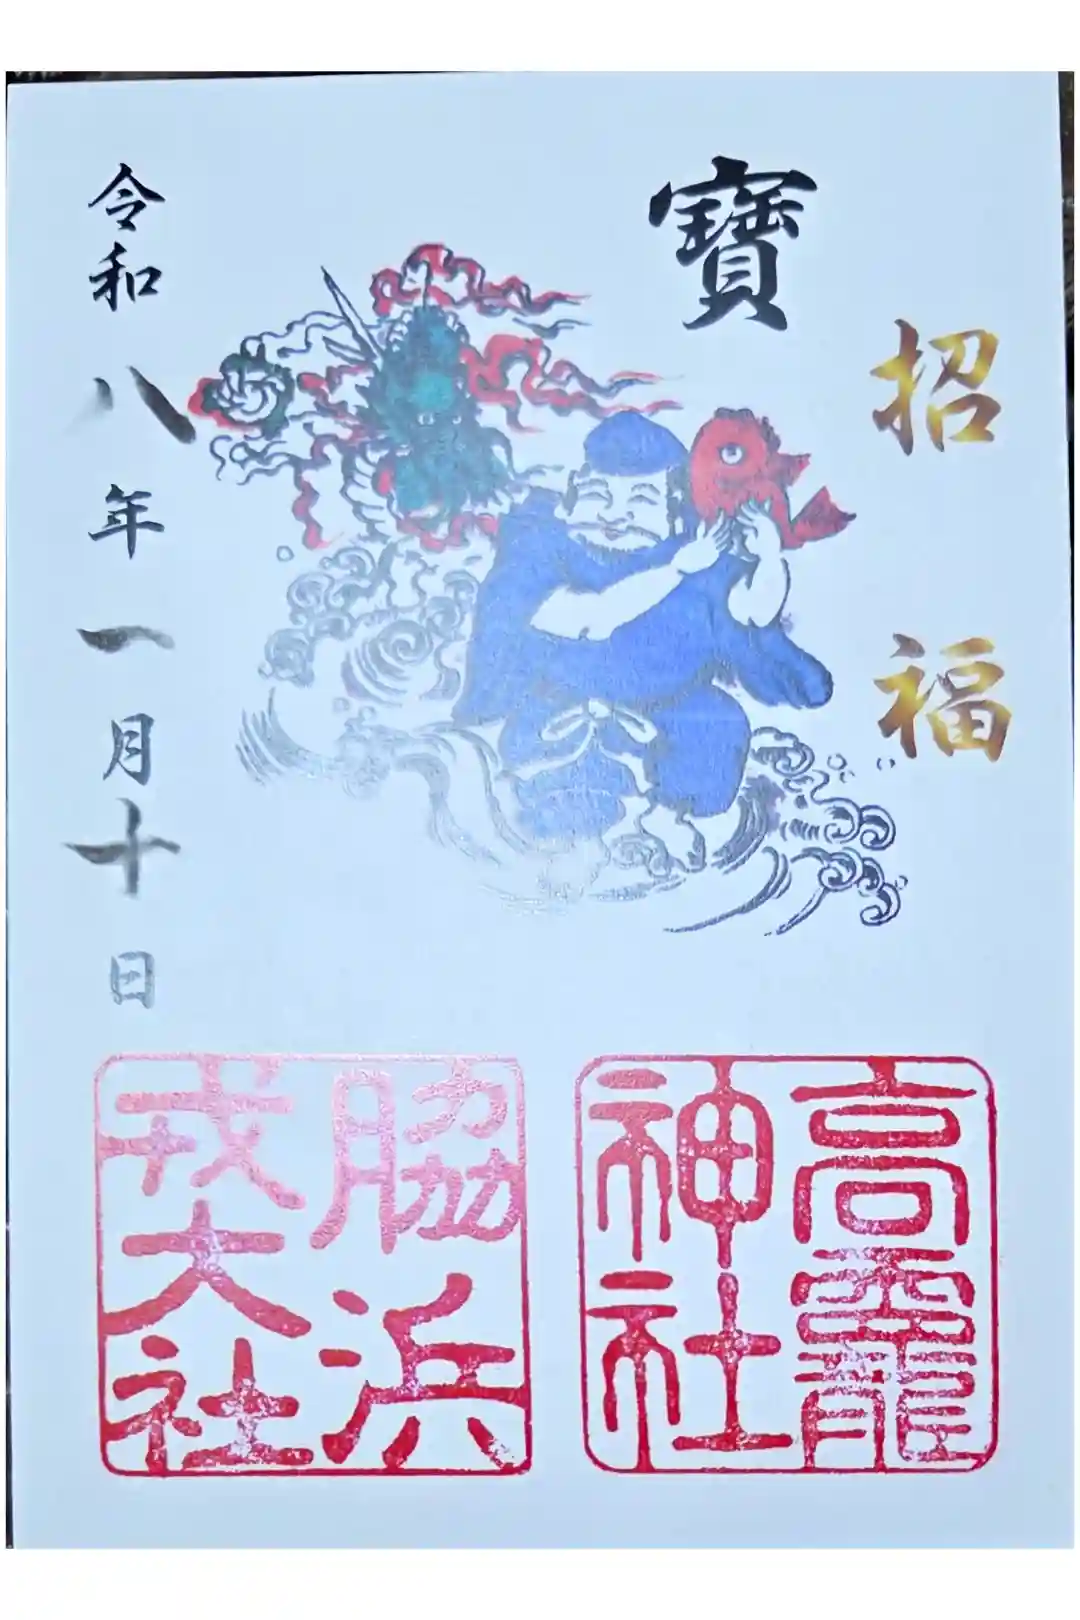 招福
寶
令和八年一月十日
高龗神社
脇浜戎大社